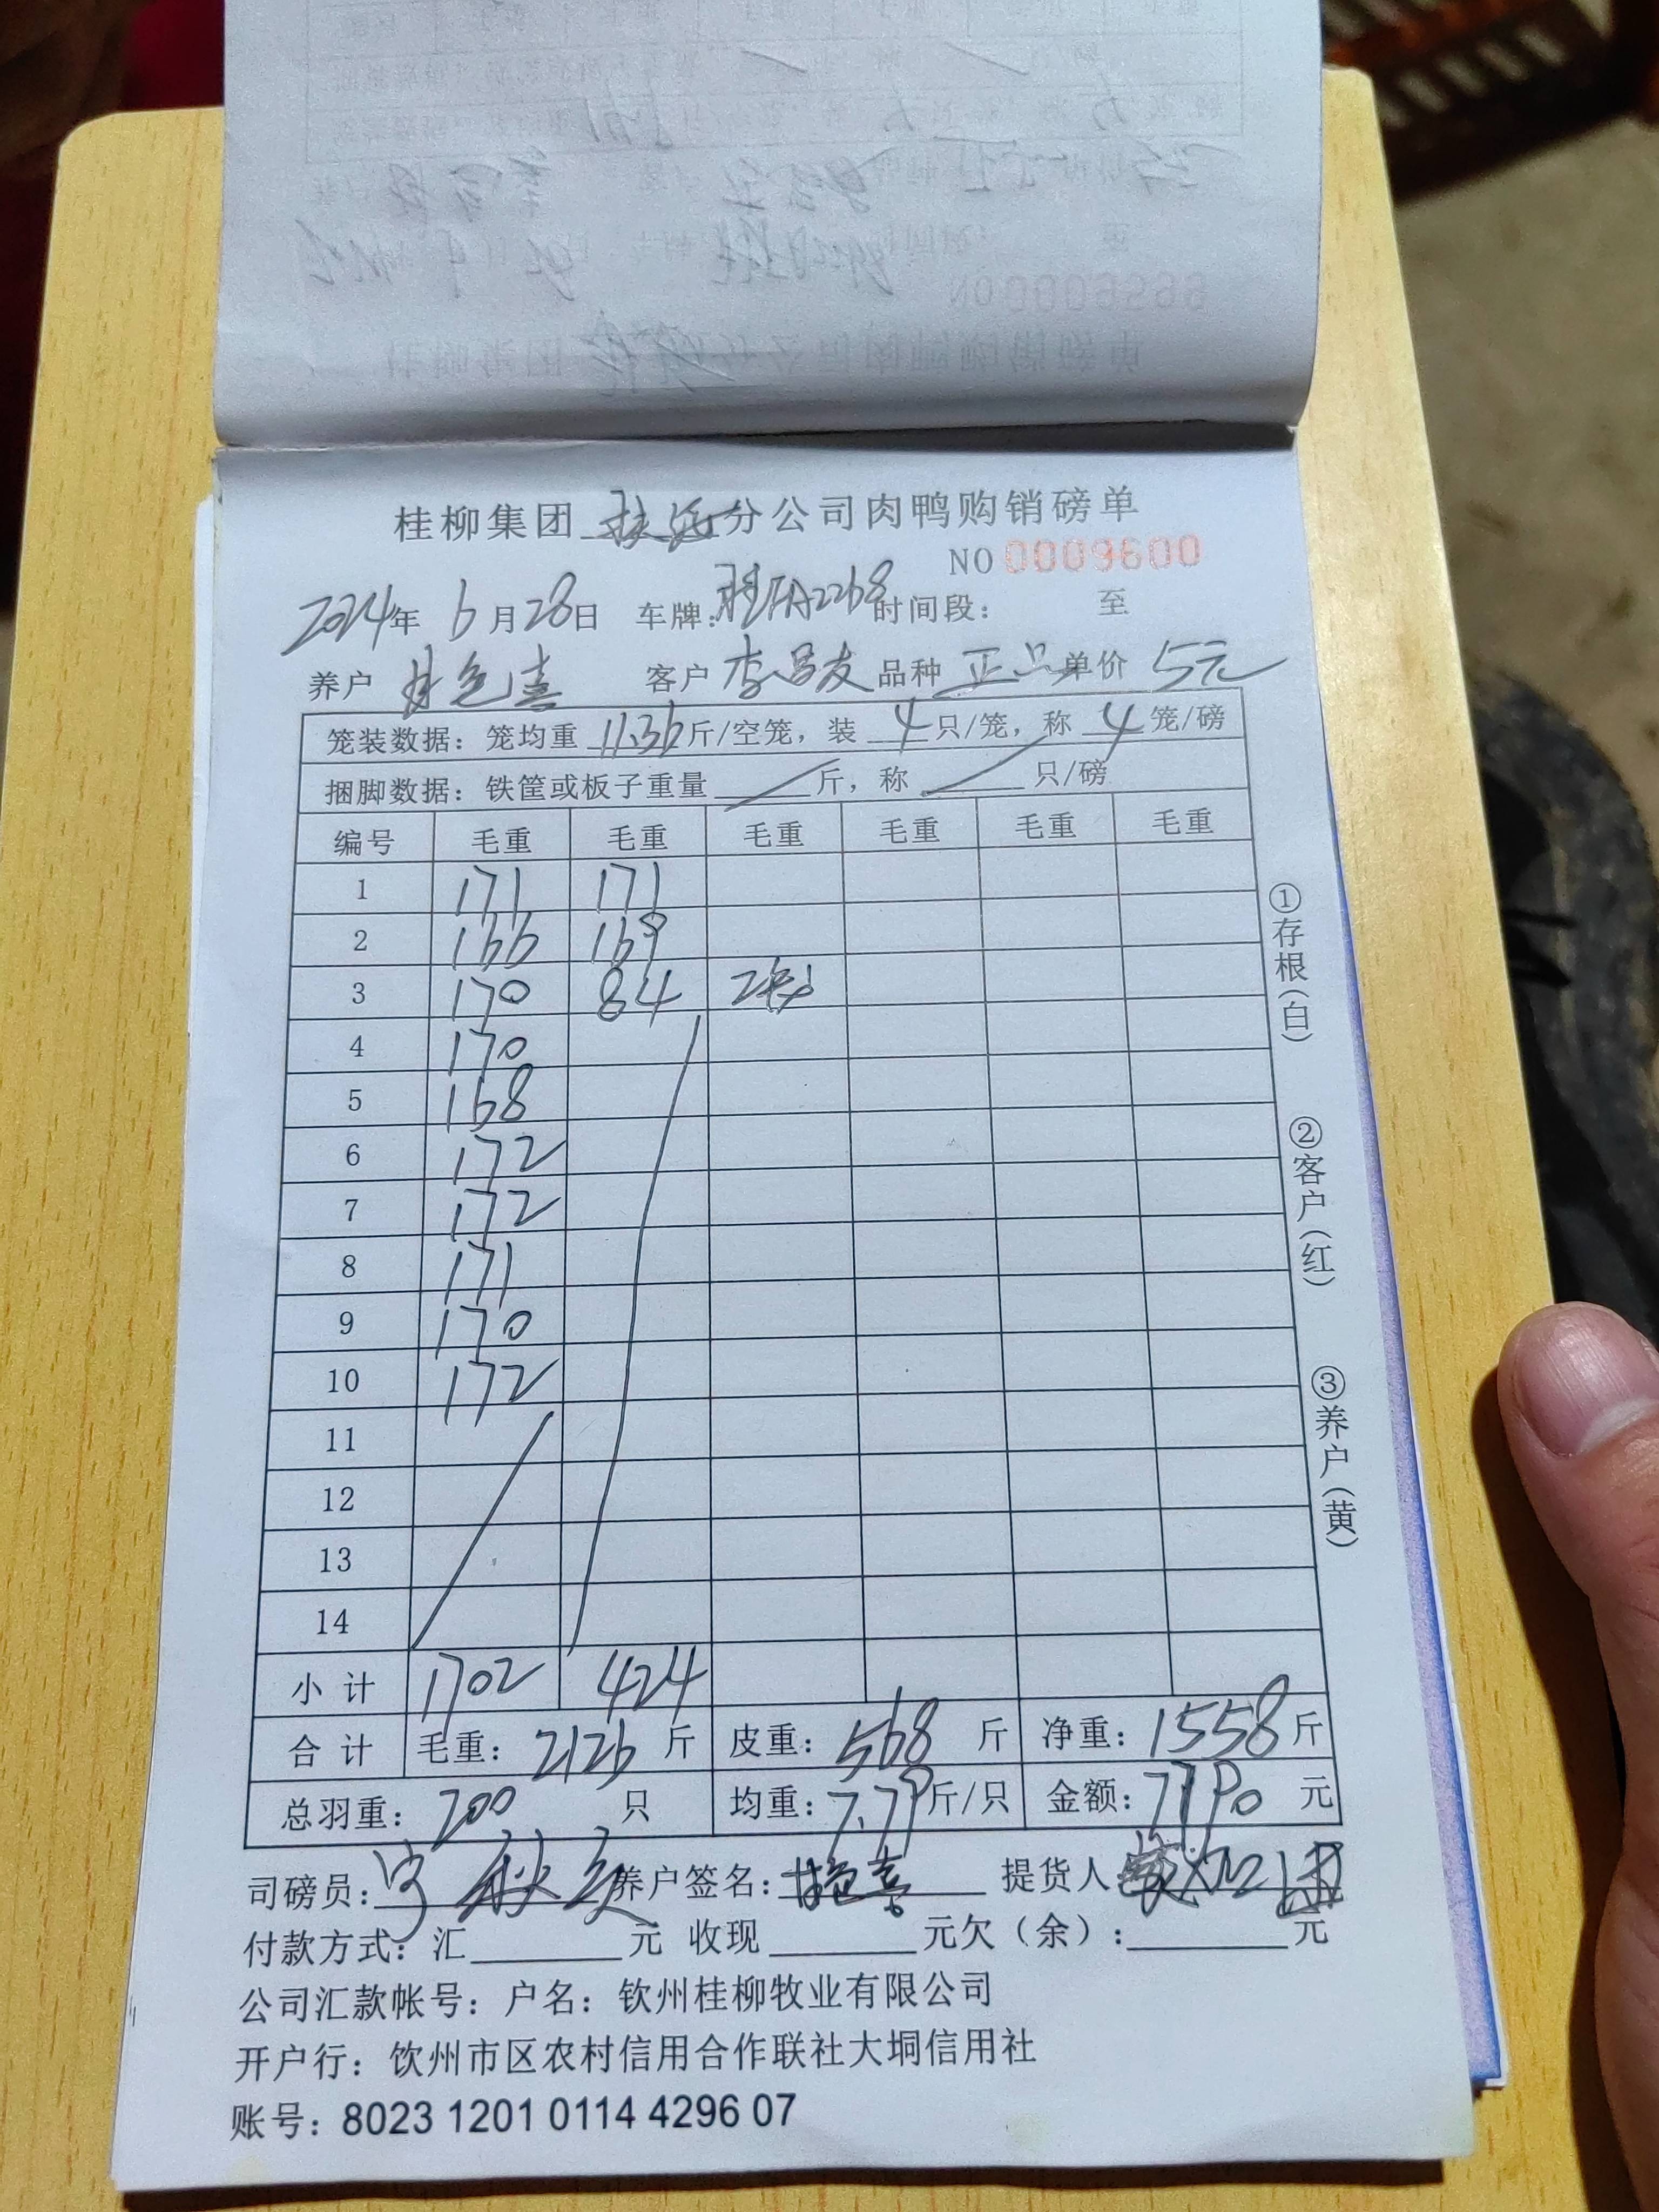 桂柳集团 分公司肉鸭购销磅单
NO 0009600
2024年 6月28日 车牌: A2268 时间段: 至
养户 色喜 客户 李昌友 品种 正品 单价 5元
笼装数据: 笼均重 11.36 斤/空笼, 装 4 只/笼, 称 4 笼/磅
捆脚数据: 铁筐或板子重量 斤, 称 只/磅
编号 毛重 毛重 毛重 毛重 毛重 毛重
1 171 171
2 166 169
3 170 84
4 170
5 168
6 172
7 172
8 171
9 170
10 172
11
12
13
14
小计 1702 424
合计 毛重: 2126 斤 皮重: 568 斤 净重: 1558 斤
总羽重: 200 只 均重: 7.79 斤/只 金额: 7790 元
司磅员: 养户签名: 提货人
付款方式: 汇 元 收现 元欠(余): 元
公司汇款帐号: 户名: 钦州桂柳牧业有限公司
开户行: 饮州市区农村信用合作联社大垌信用社
账号: 8023 1201 0114 4296 07
①存根(白)
②客户(红)
③养户(黄)